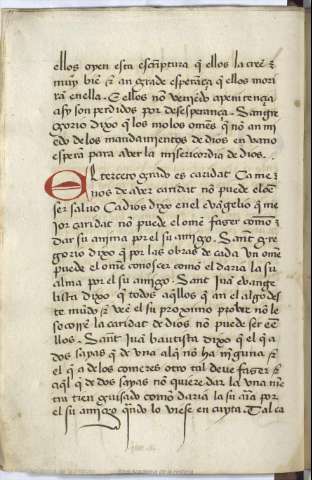 ellos oyen esta escriptura q̃ ellos la creẽ ⁊
muy biẽ ⁊ an grade esperãça q̃ ellos mori
rã en ella. E ellos nõ veniẽdo a penitençia
asy son perdidos por desesperãça. Sant gre
gorio dixo q̃ los malos omẽs q̃ nõ an mi
edo de los mandamientos de dios en vano
esperã para aver la misericordia de dios.
El terçero grado es caridat Ca me
nos de aver caridat nõ puede el oẽ
ser salvo Ca dios dixo en el evãgelio q̃ me
jor caridat nõ puede el omẽ fazer como ⁊
dar su anima por el su amigo. Sant gre
gorio dixo q̃ por las obras de cada un omẽ
puede el omẽ conosçer como el daria la su
alma por el su amigo. Sant Juã evange
lista dixo q̃ todos aq̃llos q̃ an el algo des
te mũdo ⁊ veẽ el su proximo pobre nõ le
socorrẽ la caridat de dios nõ puede ser eẽ
llos. Sant Juã bautista dixo q̃ el q̃ a
dos sayas q̃ de una al q̃ nõ ha ninguna ⁊
el q̃ a de los comeres otro tal deve fazer ⁊
aq̃l q̃ de dos sayas nõ quiere dar la una
guisado como daria la su aĩa por
el su amigo q̃ndo lo viese en cuyta. Tal ca